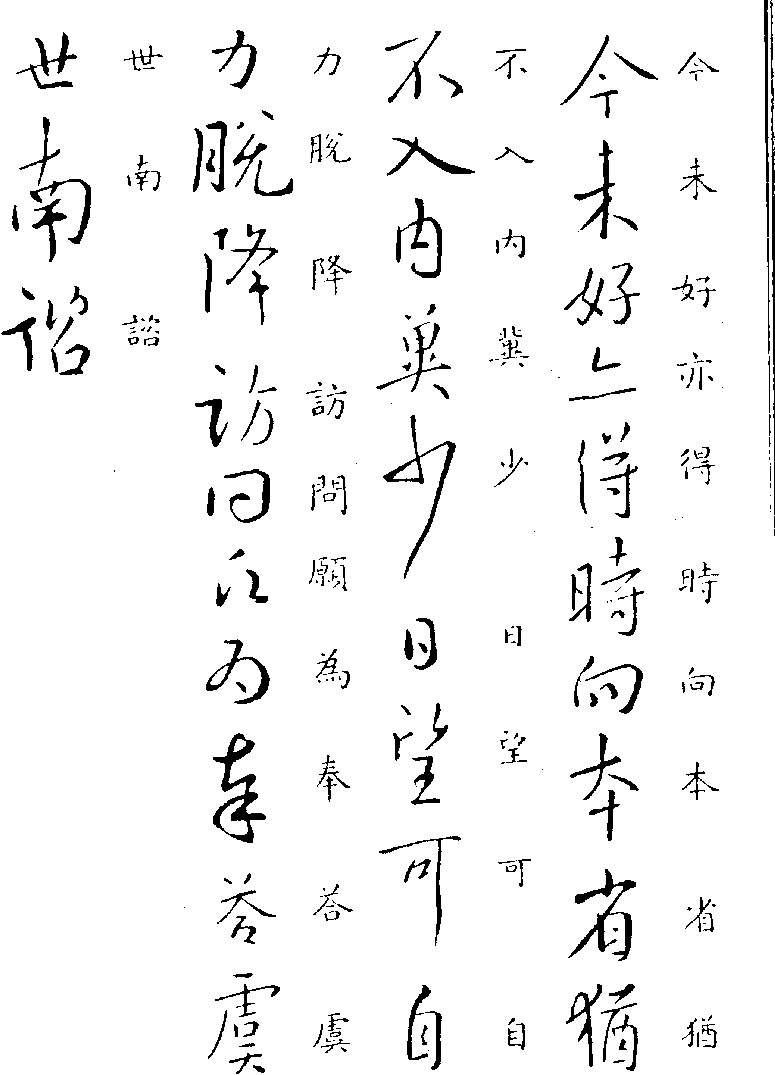 今未好亦得時向本省猶
今未好亦得時向本省猶
不入内冀少日望可自
不入内冀少日望可自
力脱降訪問願為奉荅虞
力脱降訪問願為奉荅虞
世南諮
世南諮